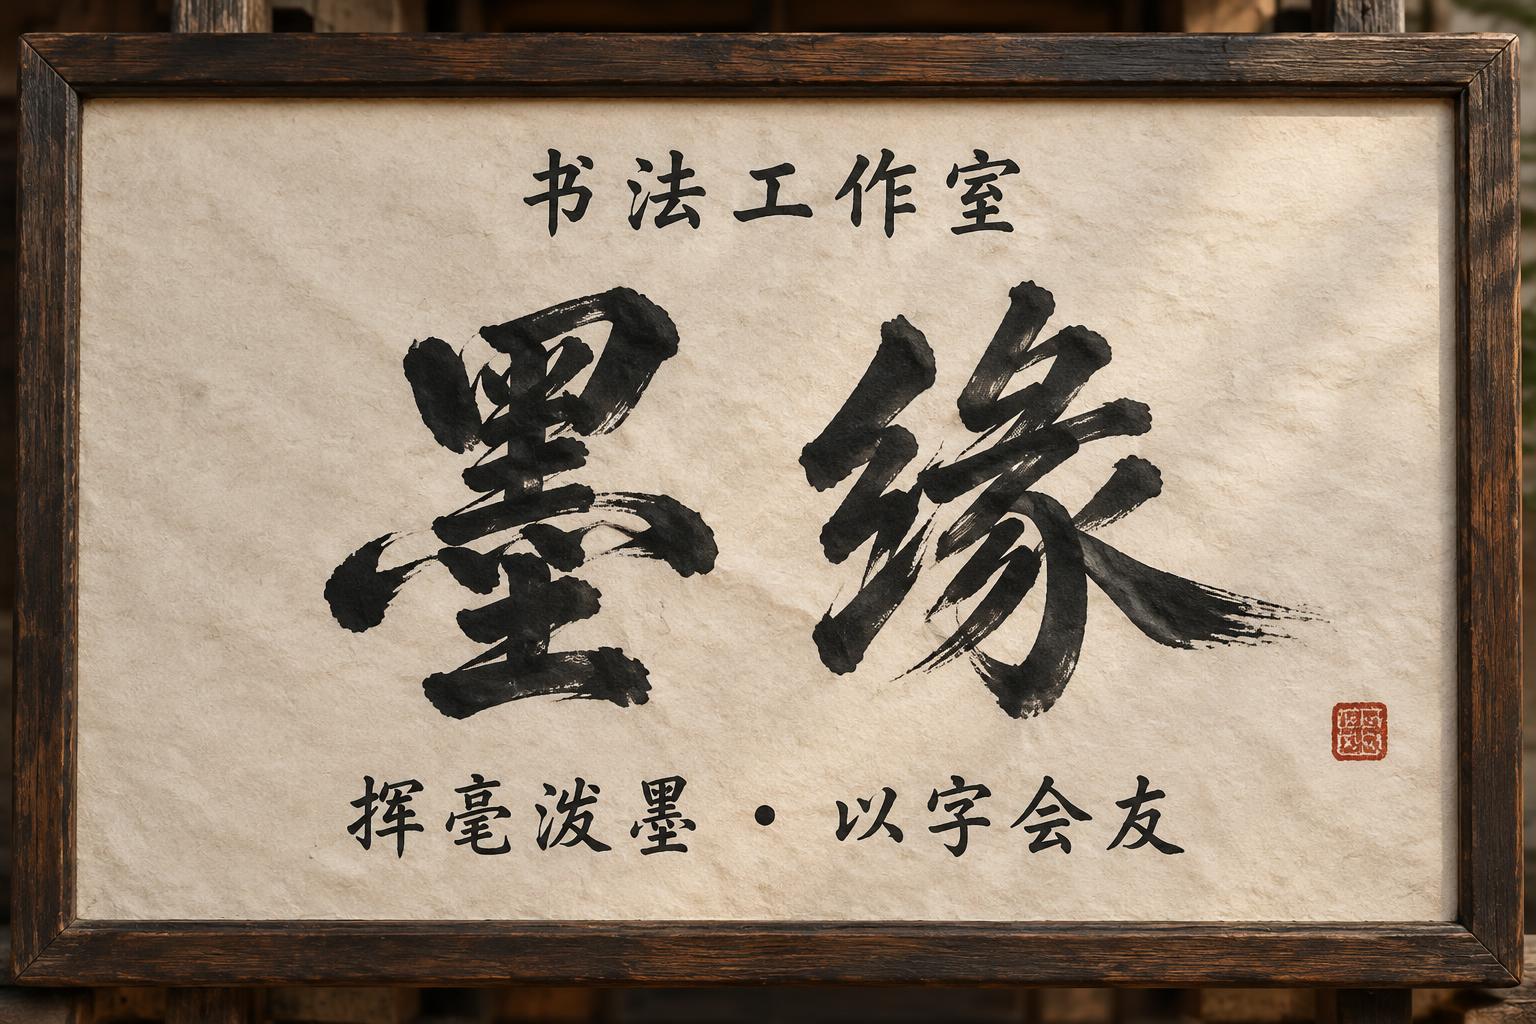 书法工作室
墨缘
挥毫泼墨·以字会友